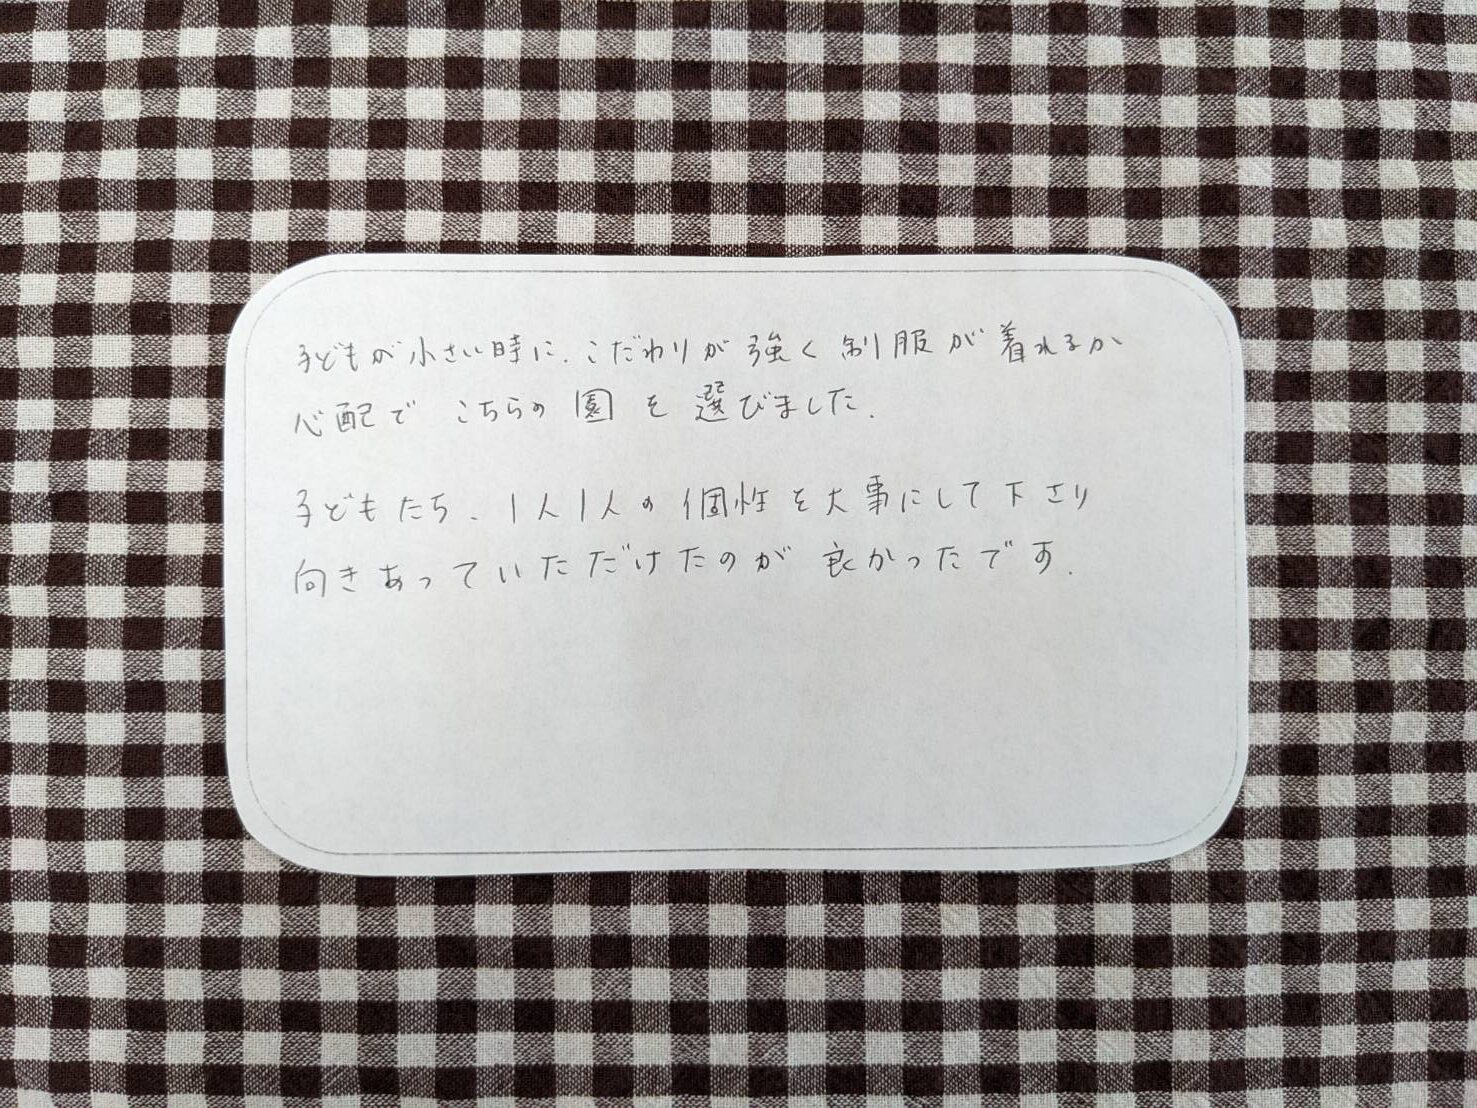 子どもが小さい時に、こだわりが強く制服が着れるか
心配でこちらの園を選びました。
子どもたち、1人1人の個性を大事にして下さり
向きあっていただけたのが良かったです。